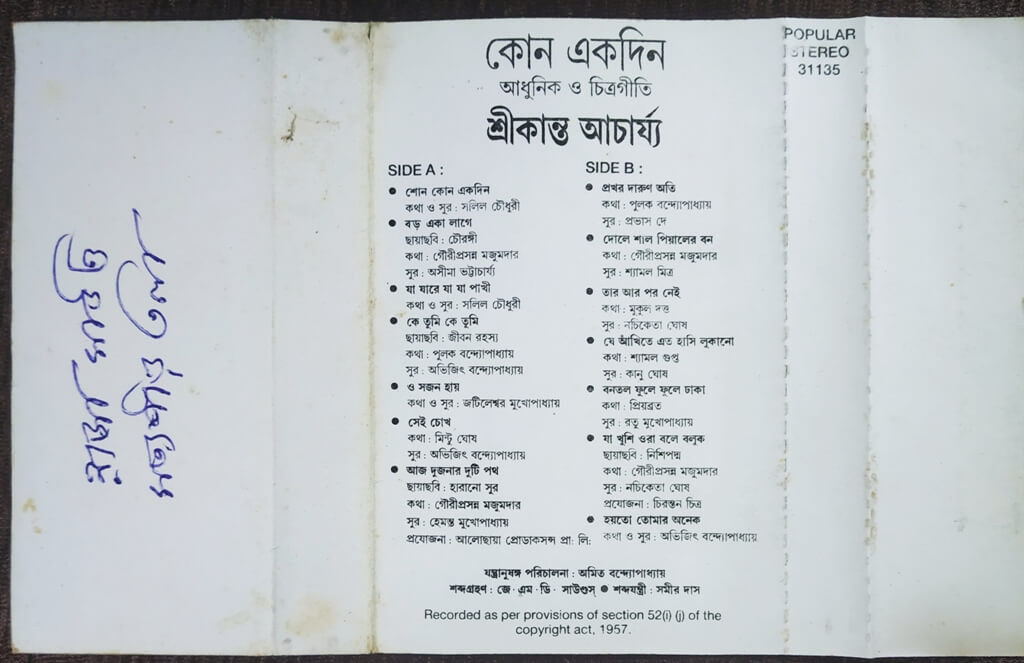 কোন একদিন
আধুনিক ও চিত্রগীতি
শ্রীকান্ত আচার্য্য
POPULAR
STEREO
31135
SIDE A :
● শোন কোন একদিন
কথা ও সুর : সলিল চৌধুরী
● বড় একা লাগে
ছায়াছবি : চৌরঙ্গী
কথা : গৌরীপ্রসন্ন মজুমদার
সুর : অসীমা ভট্টাচার্য্য
● যা যারে যা যা পাখী
কথা ও সুর : সলিল চৌধুরী
● কে তুমি কে তুমি
ছায়াছবি : জীবন রহস্য
কথা : পুলক বন্দ্যোপাধ্যায়
সুর : অভিজিৎ বন্দ্যোপাধ্যায়
● ও সজন হায়
কথা ও সুর : জটিলেশ্বর মুখোপাধ্যায়
● সেই চোখ
কথা : মিন্টু ঘোষ
সুর : অভিজিৎ বন্দ্যোপাধ্যায়
● আজ দুজনার দুটি পথ
ছায়াছবি : হারানো সুর
কথা : গৌরীপ্রসন্ন মজুমদার
সুর : হেমন্ত মুখোপাধ্যায়
প্রযোজনা : আলোছায়া প্রোডাকসন্স প্রা: লি:
SIDE B :
● প্রখর দারুণ অতি
কথা : পুলক বন্দ্যোপাধ্যায়
সুর : প্রভাস দে
● দোলে শাল পিয়ালের বন
কথা : গৌরীপ্রসন্ন মজুমদার
সুর : শ্যামল মিত্র
● তার আর পর নেই
কথা : মুকুল দত্ত
সুর : নচিকেতা ঘোষ
● যে আঁখিতে এত হাসি লুকানো
কথা : শ্যামল গুপ্ত
সুর : কানু ঘোষ
● বনতল ফুলে ফুলে ঢাকা
কথা : প্রিয়ব্রত
সুর : রতু মুখোপাধ্যায়
● যা খুশি ওরা বলে বলুক
ছায়াছবি : নিশিপদ্ম
কথা : গৌরীপ্রসন্ন মজুমদার
সুর : নচিকেতা ঘোষ
প্রযোজনা : চিরন্তন চিত্র
● হয়তো তোমার অনেক
কথা ও সুর : অভিজিৎ বন্দ্যোপাধ্যায়
যন্ত্রানুষঙ্গ পরিচালনা : অমিত বন্দ্যোপাধ্যায়
শব্দগ্রহণ : জে · এম · ডি · সাউণ্ডস্ ● শব্দযন্ত্রী : সমীর দাস
Recorded as per provisions of section 52(i) (j) of the
copyright act, 1957.